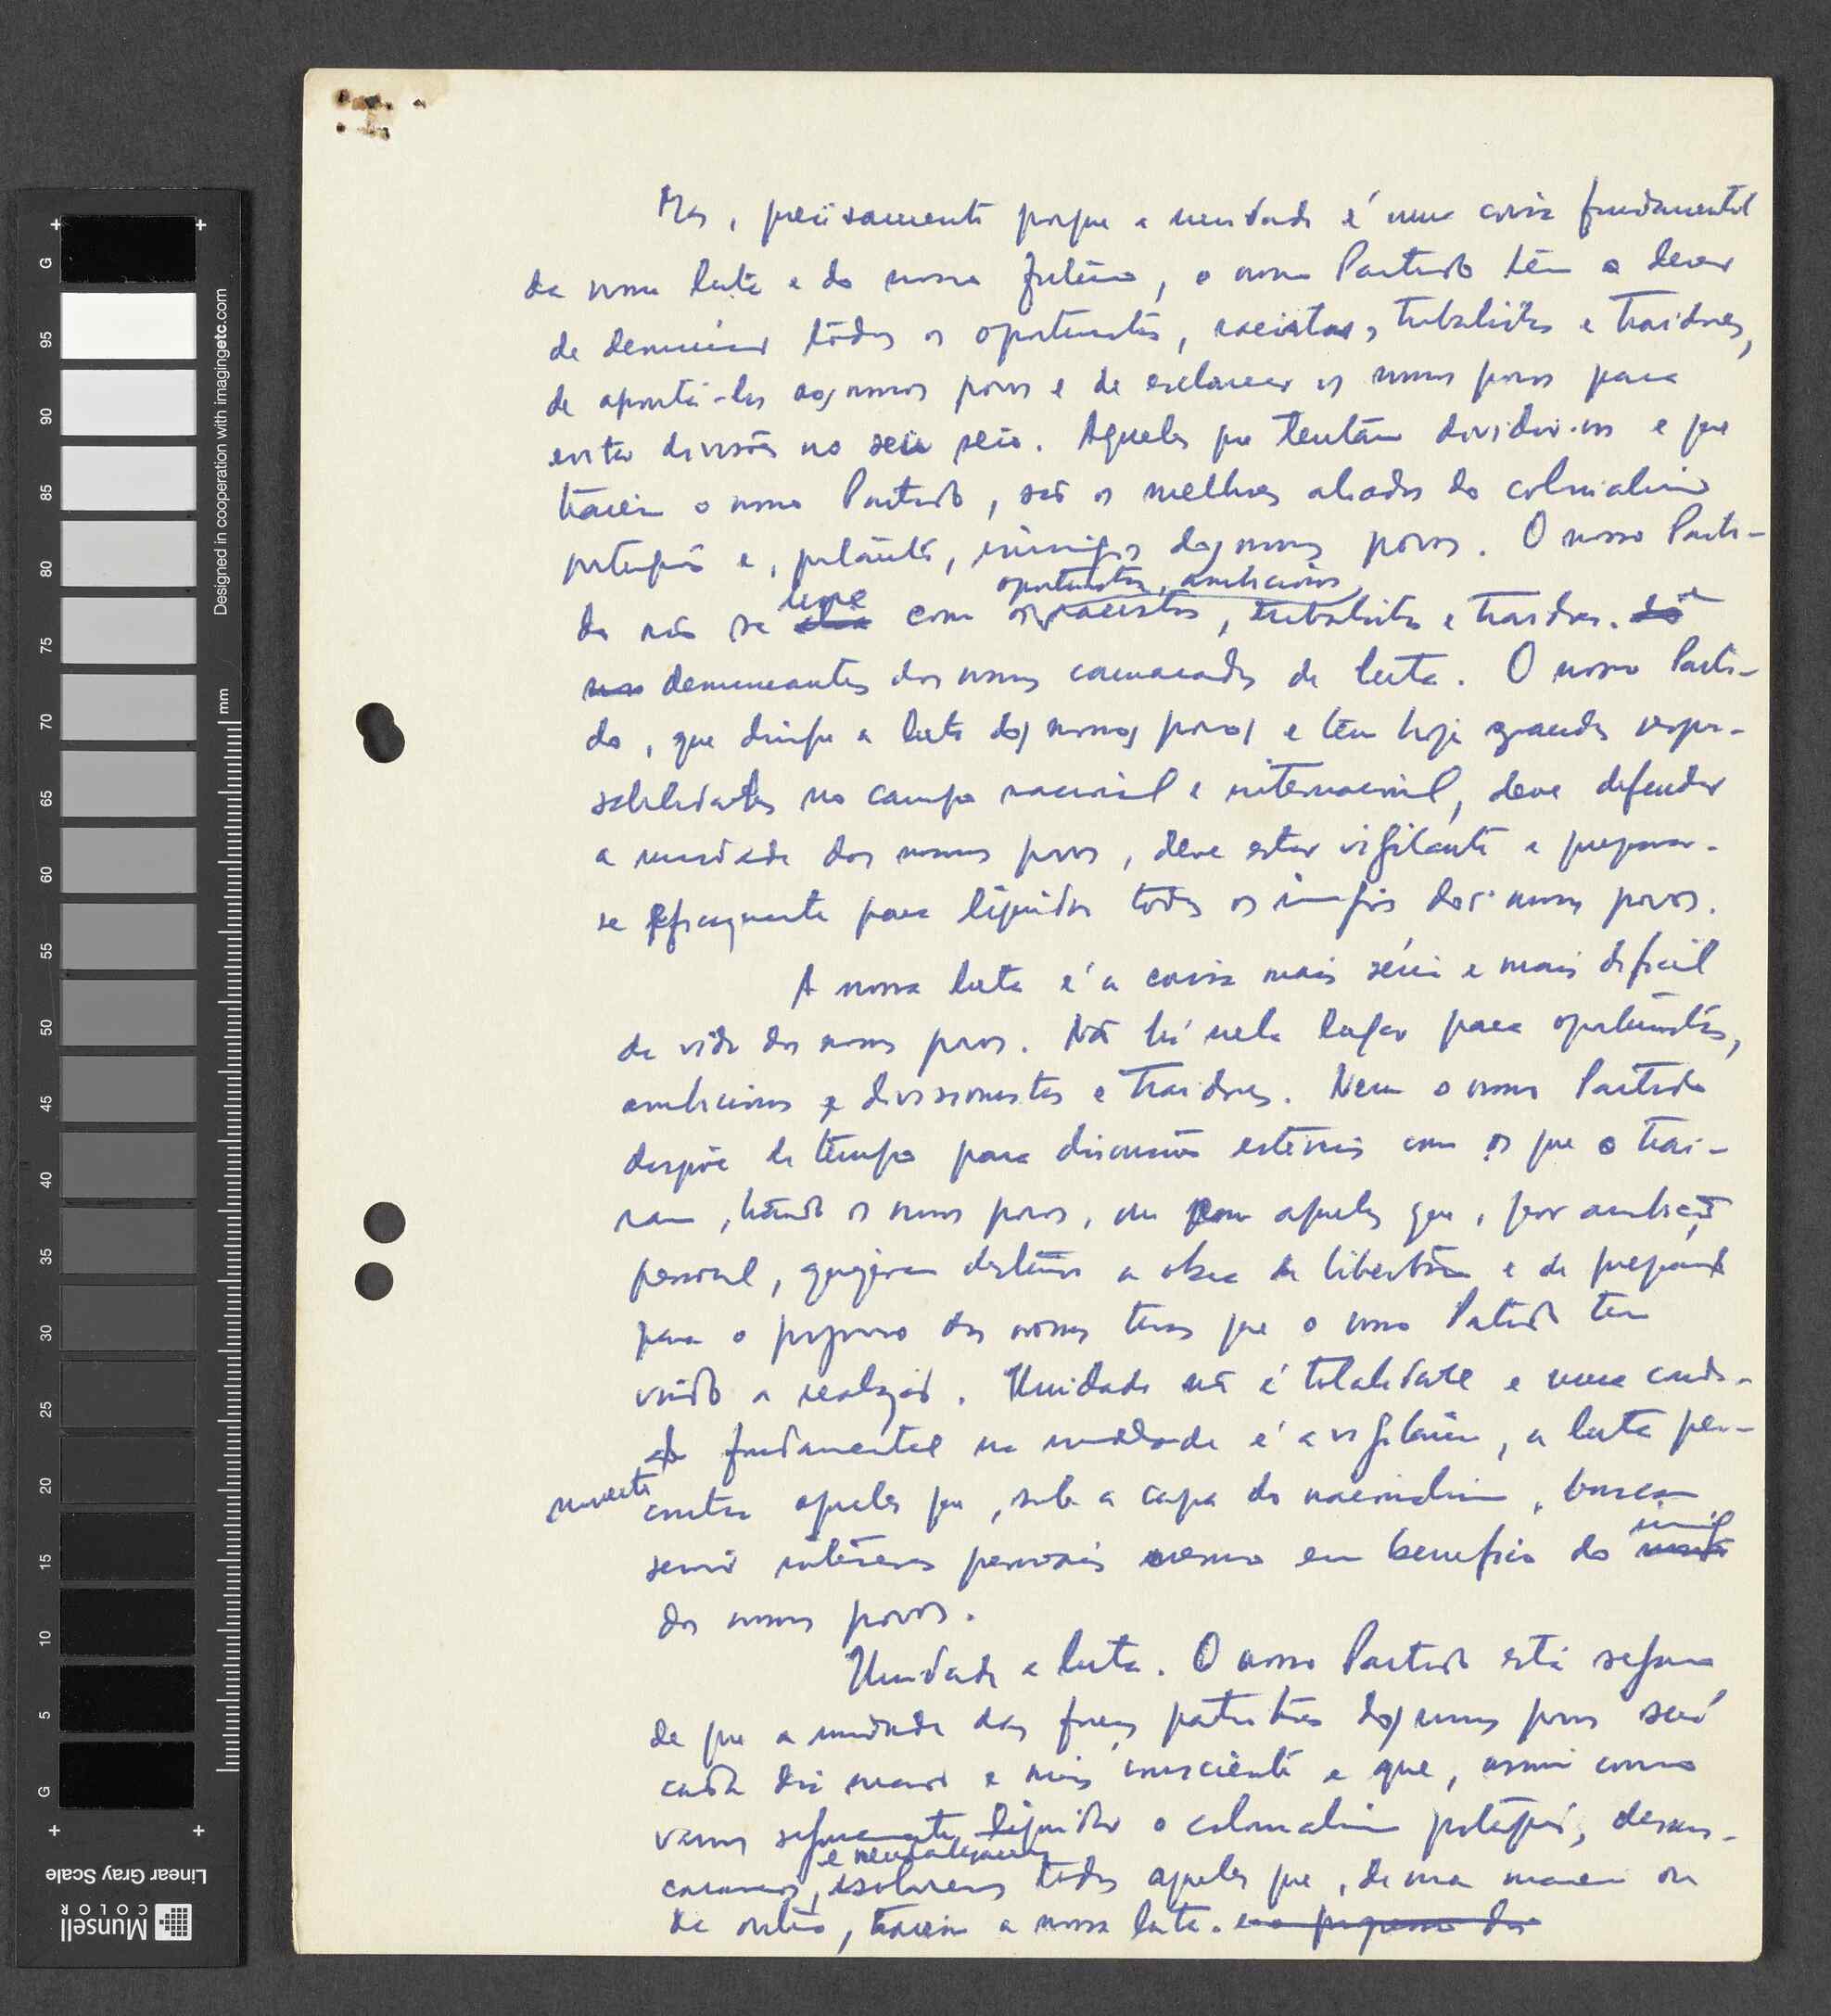 Mas, precisamente porque a unidade é uma coisa fundamental
da nossa luta e do nosso futuro, o nosso Partido tem o dever
de denunciar todos os oportunistas, racistas, tribalistas e traidores,
de apontá-los aos nossos povos e de esclarecer os nossos povos para
evitar divisões no seu seio. Aqueles que tentam dividir-nos e que
traem o nosso Partido, são os melhores aliados do colonialismo
português e, portanto, inimigos dos nossos povos. O nosso Parti-
oportunistas, ambiciosos
do não se une com os racistas, tribalistas e traidores.
denunciantes dos nossos camaradas de luta. O nosso Parti-
do, que dirige a luta dos nossos povos e tem hoje grandes respon-
sabilidades no campo nacional e internacional, deve defender
a unidade dos nossos povos, deve estar vigilante e preparar-
se eficazmente para liquidar todos os inimigos dos nossos povos.
A nossa luta é a coisa mais séria e mais difícil
da vida dos nossos povos. Não há nela lugar para oportunistas,
ambiciosos e divisionistas e traidores. Nem o nosso Partido
dispõe de tempo para discussões estéreis com os que o traí-
ram, traindo os nossos povos, ou com aqueles que, por ambição
pessoal, quizeram destruir a obra de libertação e de preparação
para o progresso das nossas terras que o nosso Partido tem
vindo a realizar. Unidade não é totalidade e uma condi-
ção fundamental na unidade é a vigilância, a luta per-
manente contra aqueles que, sob a capa do nacionalismo, buscam
servir interesses pessoais mesmo em benefício do inimigo
dos nossos povos.
Unidade e luta. O nosso Partido está seguro
de que a unidade das forças patrióticas dos nossos povos será
cada dia maior e mais consciente e que, assim como
vamos seguramente liquidar o colonialismo português, desmas-
e neutralizaremos
cararemos, isolaremos todos aqueles que, de uma maneira ou
de outra, traem a nossa luta. e o progresso dos